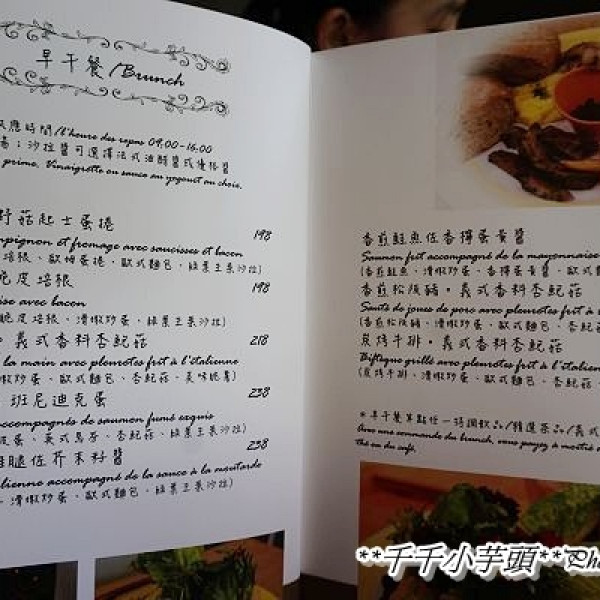 早午餐/Brunch
供應時間/l'heure des repas 09:00-16:00
湯；沙拉醬可選擇法式油醋醬或優格醬
prime, Vinaigrette ou sauce au yogourt au choix.
野菇起士蛋捲 198
champignon et fromage avec saucisses et bacon
培根、歐姆蛋捲、歐式麵包、綠葉生菜沙拉)
脆皮培根 198
aise avec bacon
脆皮培根、滑嫩炒蛋、綠葉生菜沙拉)
・義式香料杏鮑菇 218
la main avec pleurotes frit à l'italienne
嫩炒蛋、歐式麵包、杏鮑菇、美味脆薯)
班尼迪克蛋 238
accompagnés de saumon fumé exquis
蛋、英式馬芬、杏鮑菇、綠葉生菜沙拉)
雞腿佐芥末籽醬 238
italienne accompagné de la sauce à la moutarde
、滑嫩炒蛋、歐式麵包、綠葉生菜沙拉)
香煎鮭魚佐香檸蛋黃醬
Saumon frit accompagné de la mayonnaise
(香煎鮭魚、滑嫩炒蛋、香檸蛋黃醬、歐式
香煎松阪豬・義式香料杏鮑菇
Sauté de joues de porc avec pleurotes frit à
(香煎松阪豬、滑嫩炒蛋、歐式麵包、杏鮑
炭烤牛排・義式香料杏鮑菇
Bifteque grillé avec pleurotes frit à l'italien
(炭烤牛排、滑嫩炒蛋、歐式麵包、杏鮑菇、
*早午餐單點任一特調飲品/精選茶品/義式
Avec une commande du brunch, vous payez à moitié
thé ou du café.
**千千小芋頭**Pho